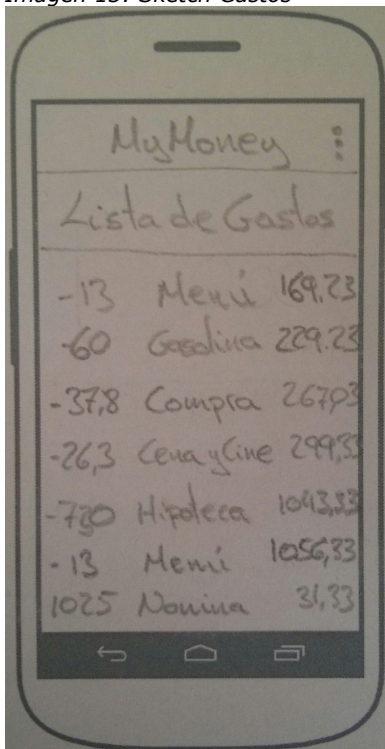 Imagen Sketch Gastos
MyMoney
Lista de Gastos
-13 Menú 169.23
-60 Gasolina 229.23
-37,8 Compra 267,03
-26,3 Cena y Cine 299,33
-730 Hipoteca 1043,33
-13 Menú 1056,33
1025 Nomina 31,33